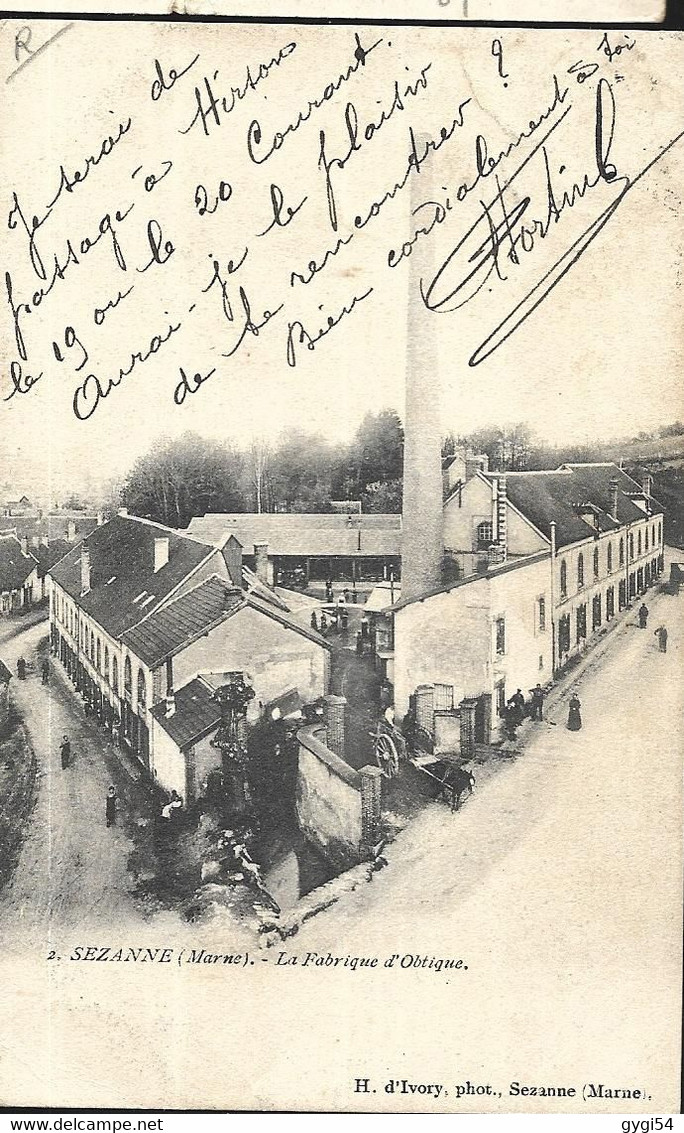 R
Je serai de
passage à Hirson
le 19 ou le 20 Courant.
Aurai-je le plaisir
de te rencontrer ?
Bien cordialement à Toi
2. SEZANNE (Marne). - La Fabrique d'Obtique.
H. d'Ivory, phot., Sezanne (Marne).
gygi54